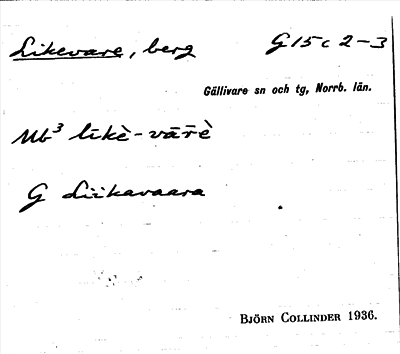 Likevare, berg G15c 2-3
Gällivare sn och tg, Norrb. län.
Mb³ līkè-vār̄è
G Liikavaara
BJÖRN COLLINDER 1936.